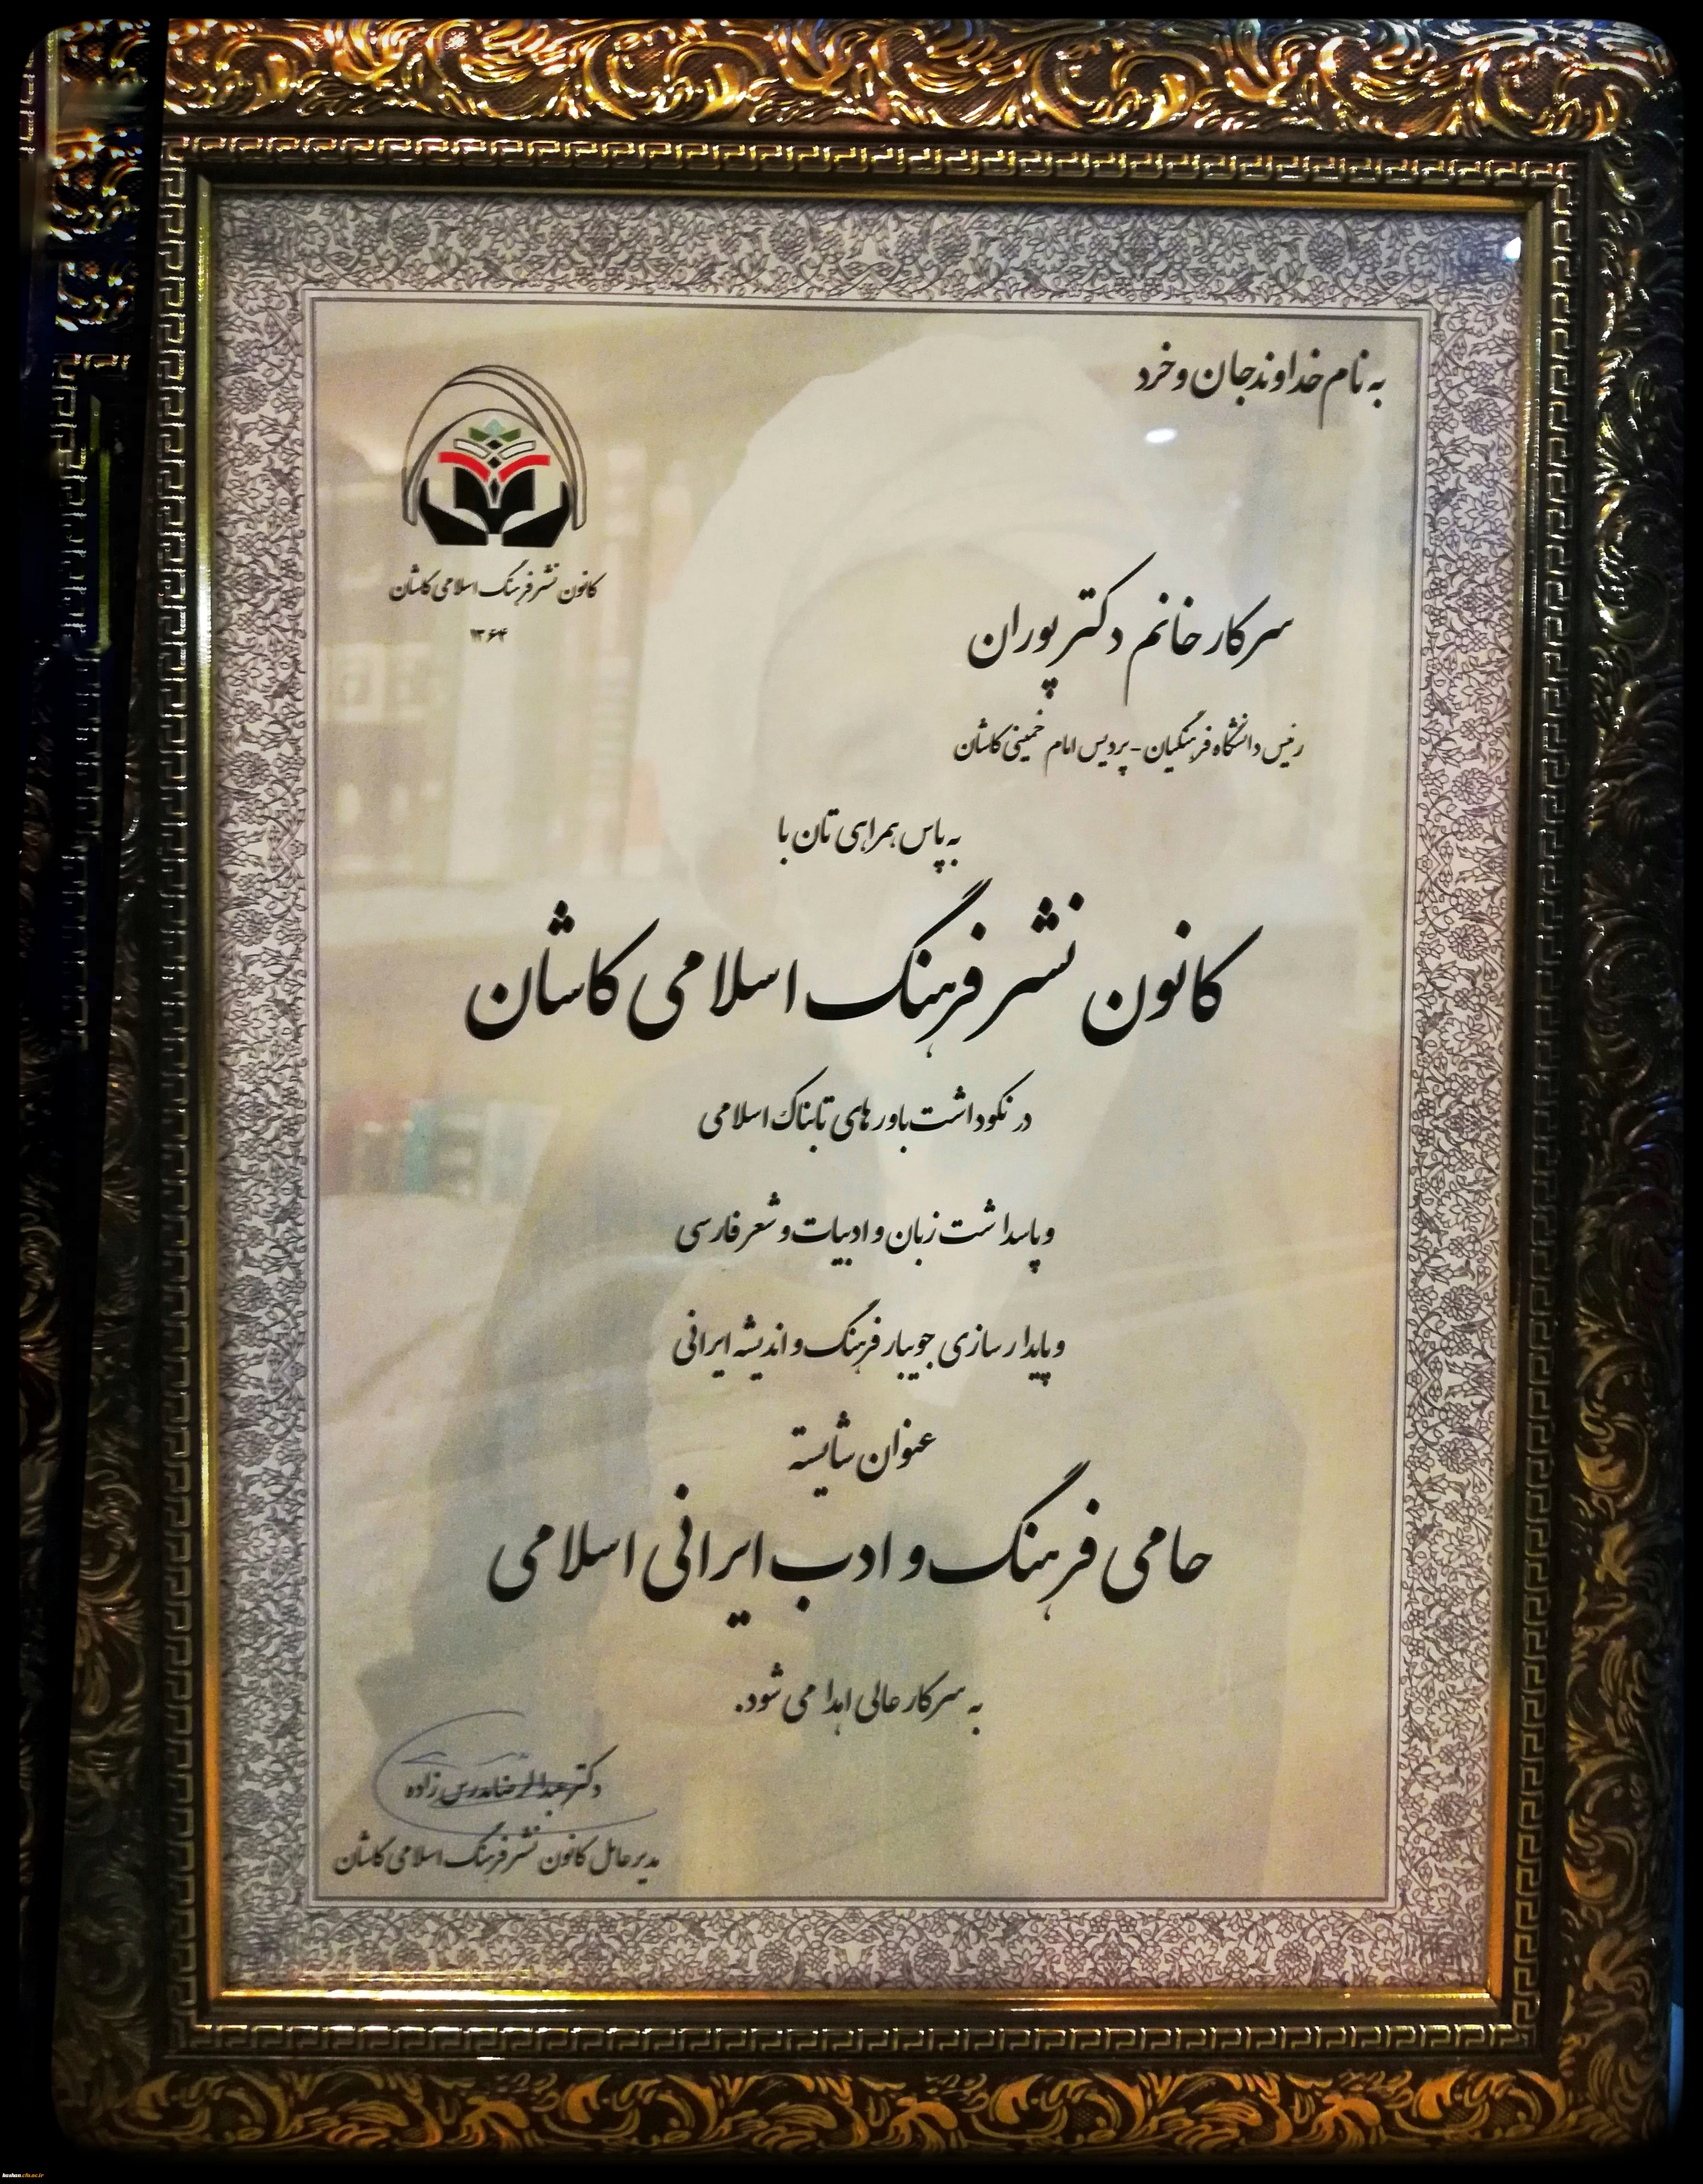 به نام خداوند جان و خرد
کانون نشر فرهنگ اسلامی کاشان
۱۳۶۴
سرکار خانم دکتر پوران
رئیس دانشگاه فرهنگیان - پردیس امام خمینی کاشان
به پاس همراهی تان با
کانون نشر فرهنگ اسلامی کاشان
در نکوداشت باورهای تابناک اسلامی
و پاسداشت زبان و ادبیات و شعر فارسی
و پایدارسازی جویبار فرهنگ و اندیشه ایرانی
عنوان شایسته
حامی فرهنگ و ادب ایرانی اسلامی
به سرکار عالی اهدا می شود.
دکتر عبدالرضا مدرس زاده
مدیر عامل کانون نشر فرهنگ اسلامی کاشان
kashan.cfu.ac.ir